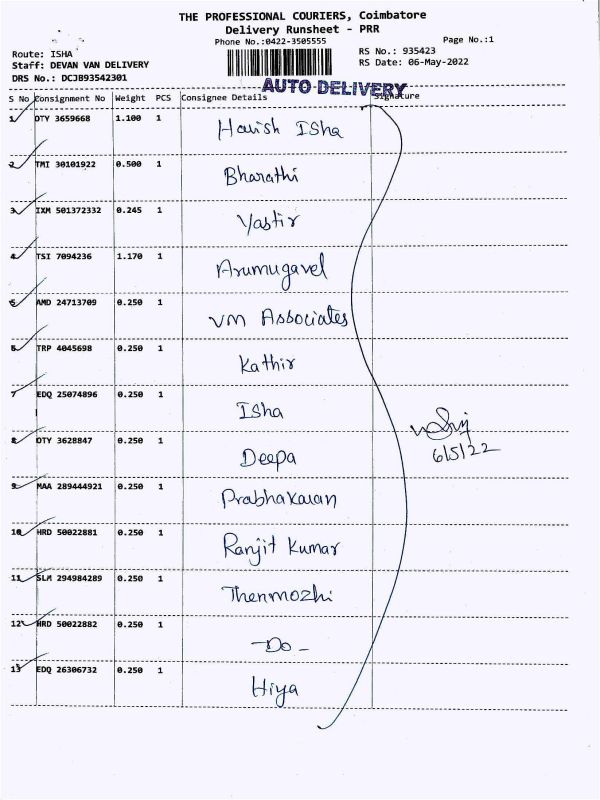 THE PROFESSIONAL COURIERS, Coimbatore
Delivery Runsheet - PRR
Phone No.:0422-3505555
Page No.:1
Route: ISHA
RS No.: 935423
Staff: DEVAN VAN DELIVERY
RS Date: 06-May-2022
DRS No.: DCJB93542301
AUTO DELIVERY
S No Consignment No Weight PCS Consignee Details Signature
1 OTY 3659668 1.100 1 Harish Isha
2 TMI 30101922 0.500 1 Bharathi
3 IXM 501372332 0.245 1 Yastir
4 TSI 7094236 1.170 1 Arumugavel
5 AMD 24713709 0.250 1 VM Associates
6 TRP 4045698 0.250 1 Kathir
7 EDQ 25074896 0.250 1 Isha
8 OTY 3628847 0.250 1 Deepa
6/5/22
9 MAA 289444921 0.250 1 Prabhakaran
10 HRD 50022881 0.250 1 Ranjit Kumar
11 SLM 294984289 0.250 1 Thenmozhi
12 HRD 50022882 0.250 1 -Do-
13 EDQ 26306732 0.250 1 Hiya